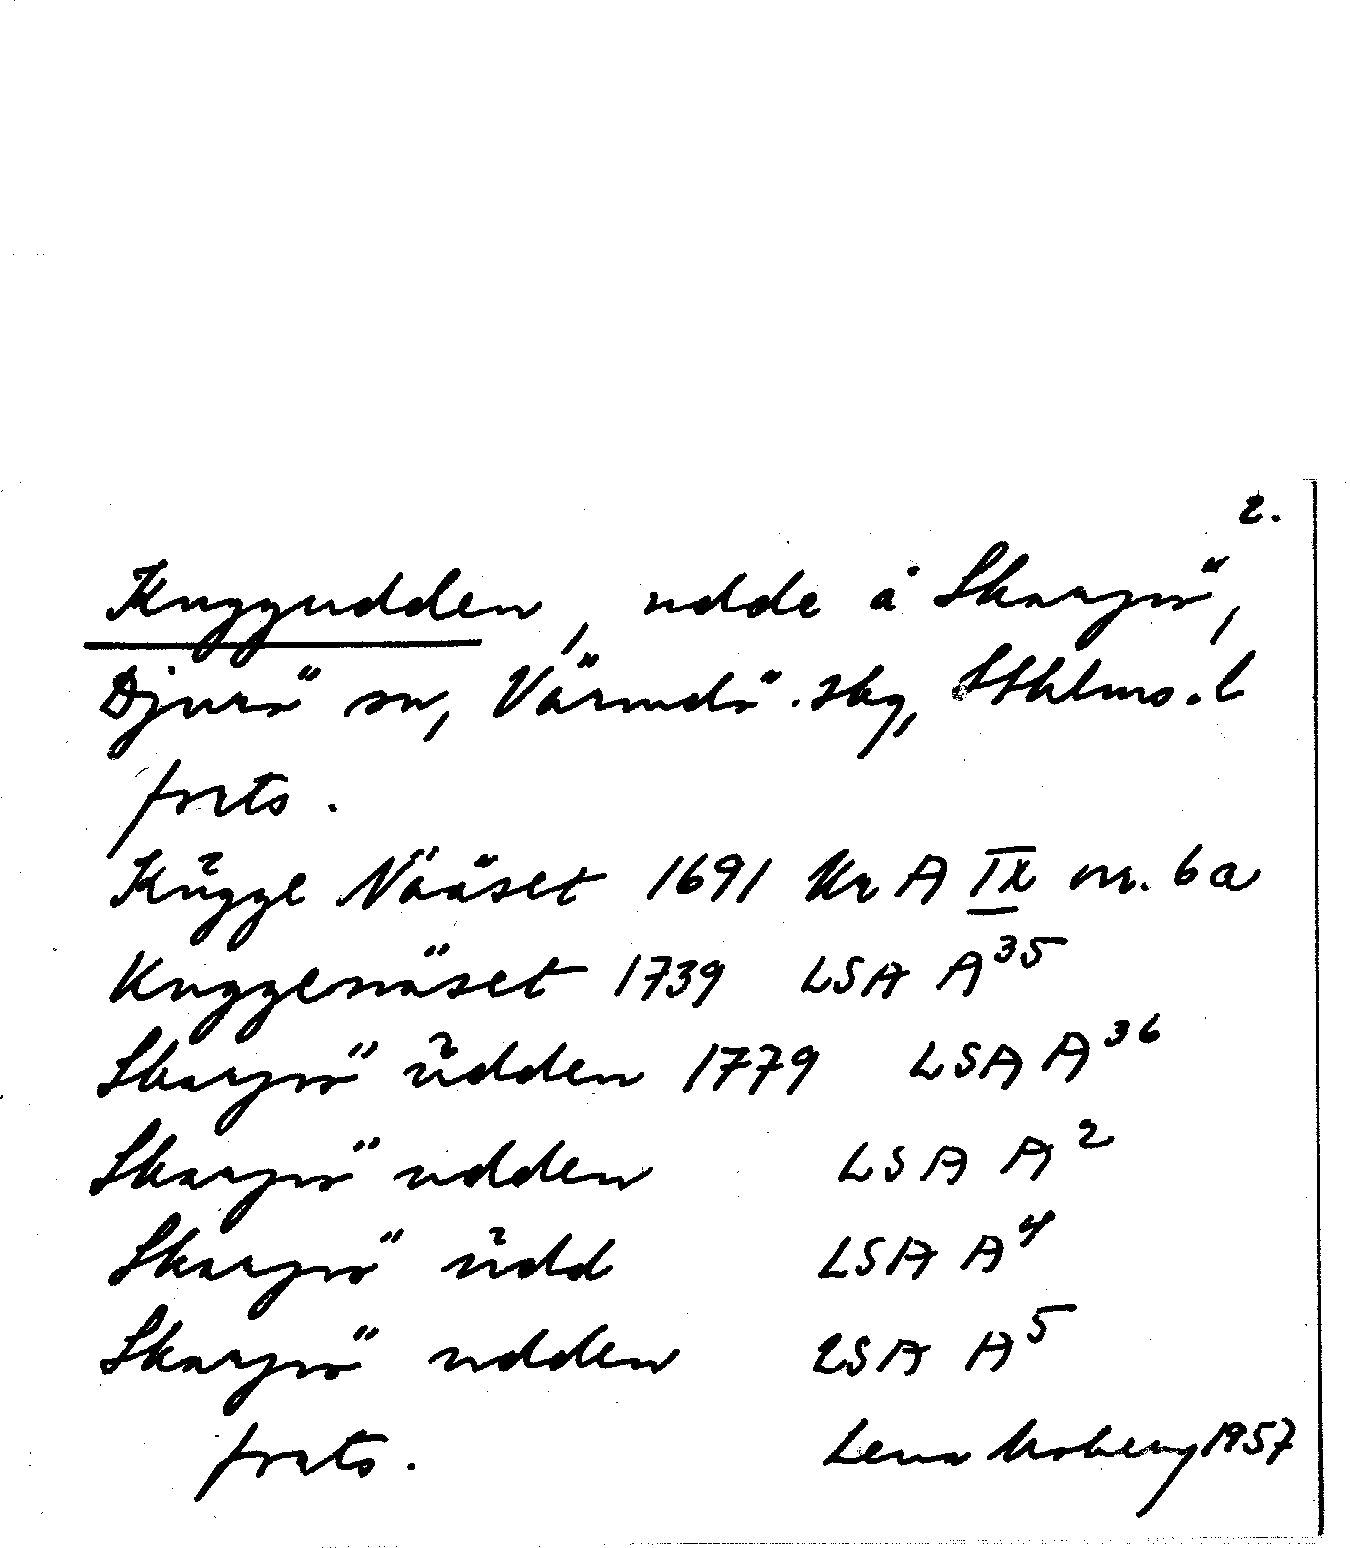 2.
Kuggudden, udde å Skarpö,
Djurö sn, Värmdö skg, Sthlms.l
forts.
Kŭgge Nääset 1691 Kr A IX nr. 6a
Kuggenäset 1739 LSA A35
Skarpö ŭdden 1779 LSA A36
Skarpö udden LSA A2
Skarpö ŭdd LSA A4
Skarpö udden LSA A5
forts. Lena Moberg 1957